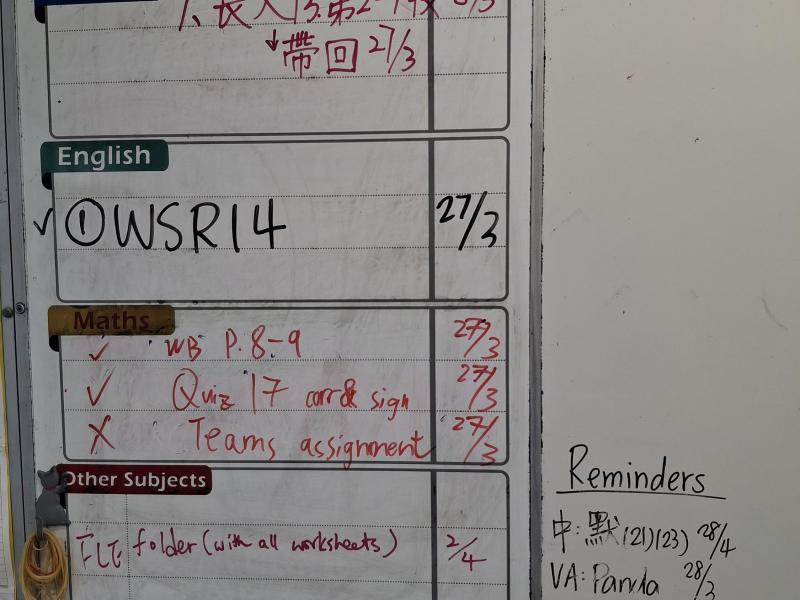 ↓帶回 27/3
English
✓ ①WSR14 27/3
Maths
✓ WB P.8-9 27/3
✓ Quiz 17 corr & sign 27/3
X Teams assignment 27/3
Other Subjects
folder (with all worksheets) 2/4
Reminders
中: 默(21)(23) 28/4
VA: Panda 28/3